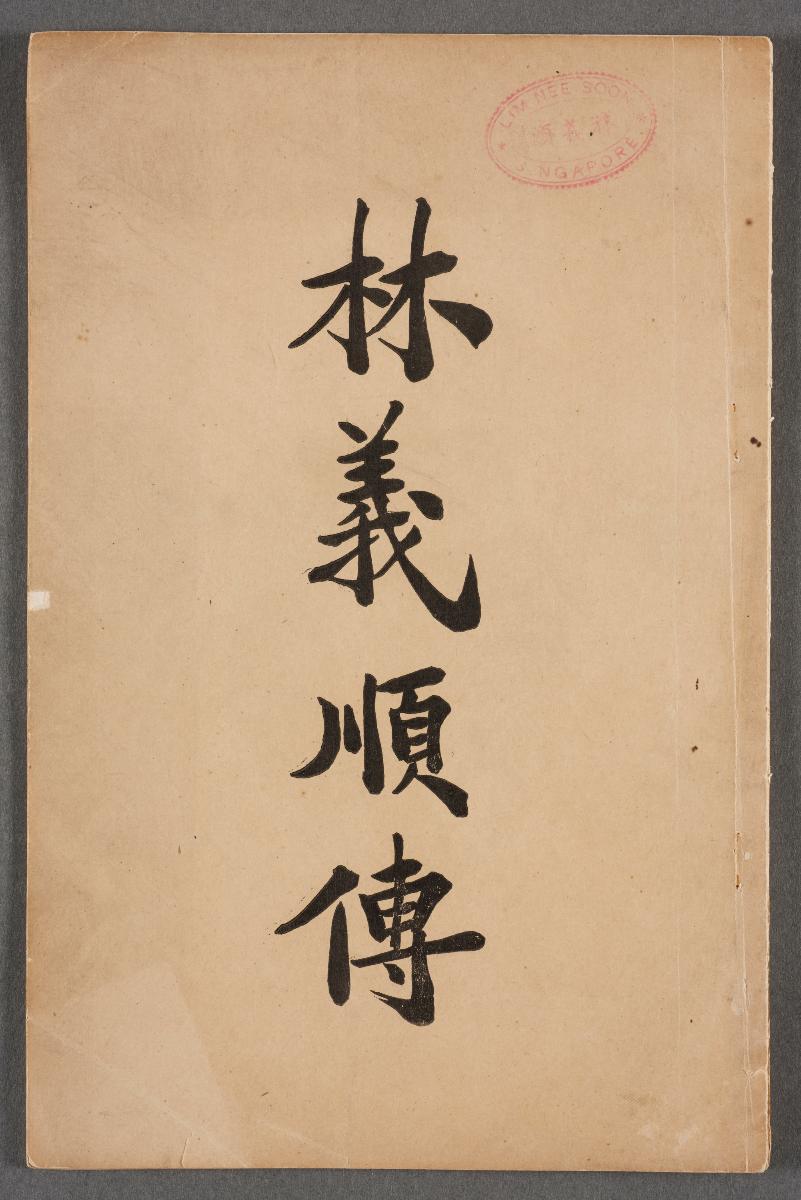 林義順傳
LIM NEE SOON
林義順
SINGAPORE